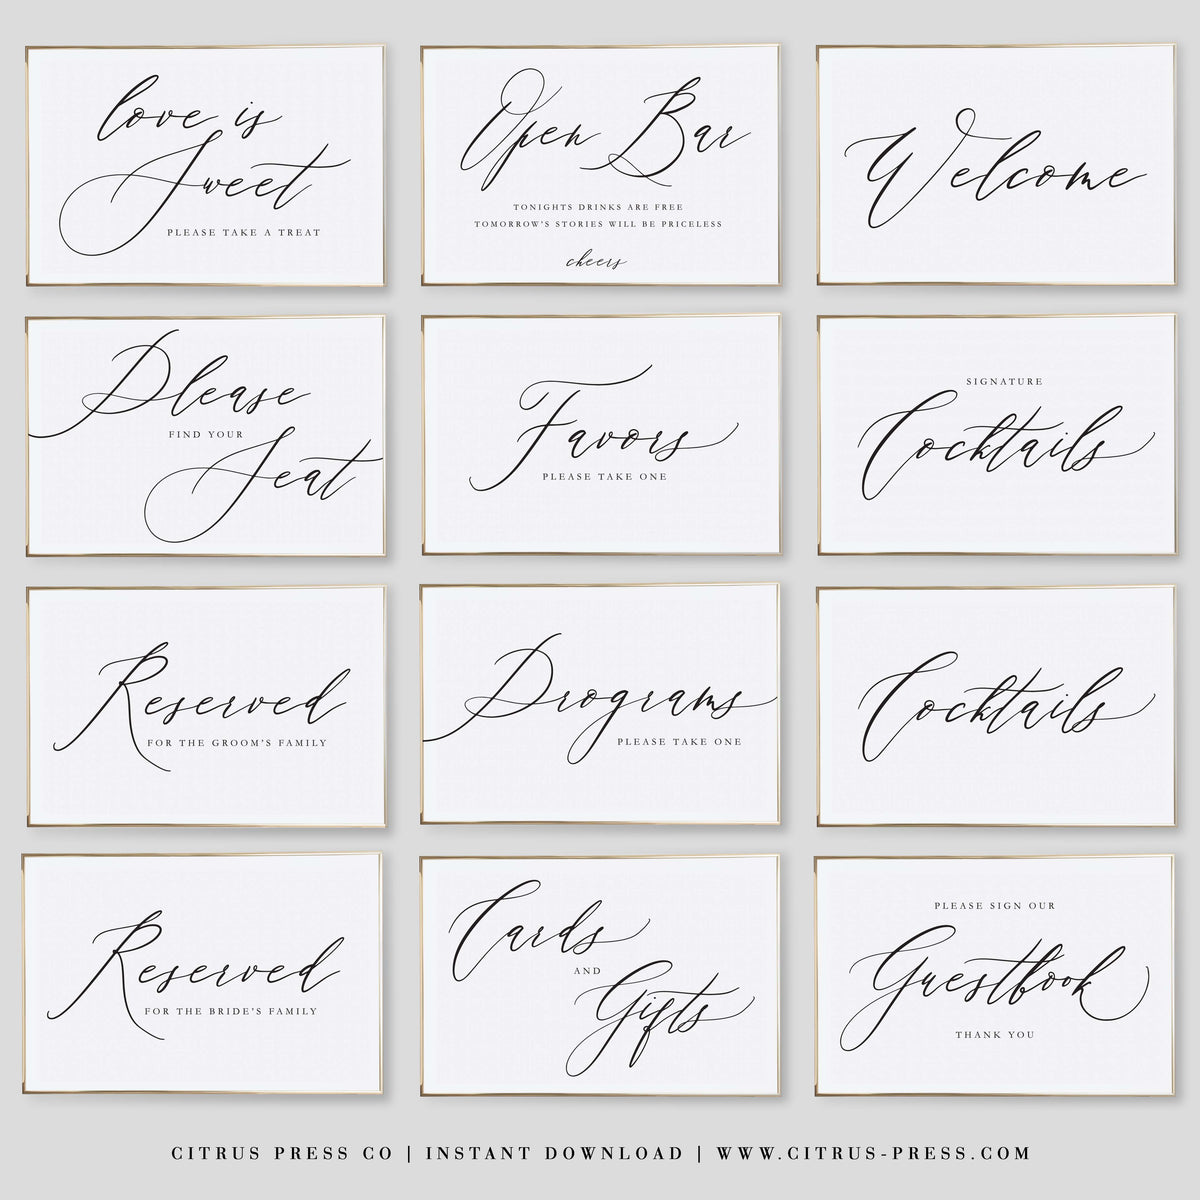 love is
Sweet
PLEASE TAKE A TREAT
Open Bar
TONIGHTS DRINKS ARE FREE
TOMORROW'S STORIES WILL BE PRICELESS
cheers
Welcome
Please
FIND YOUR
Seat
Favors
PLEASE TAKE ONE
SIGNATURE
Cocktails
Reserved
FOR THE GROOM'S FAMILY
Programs
PLEASE TAKE ONE
Cocktails
Reserved
FOR THE BRIDE'S FAMILY
Cards
AND
Gifts
PLEASE SIGN OUR
Guestbook
THANK YOU
CITRUS PRESS CO | INSTANT DOWNLOAD | WWW.CITRUS-PRESS.COM